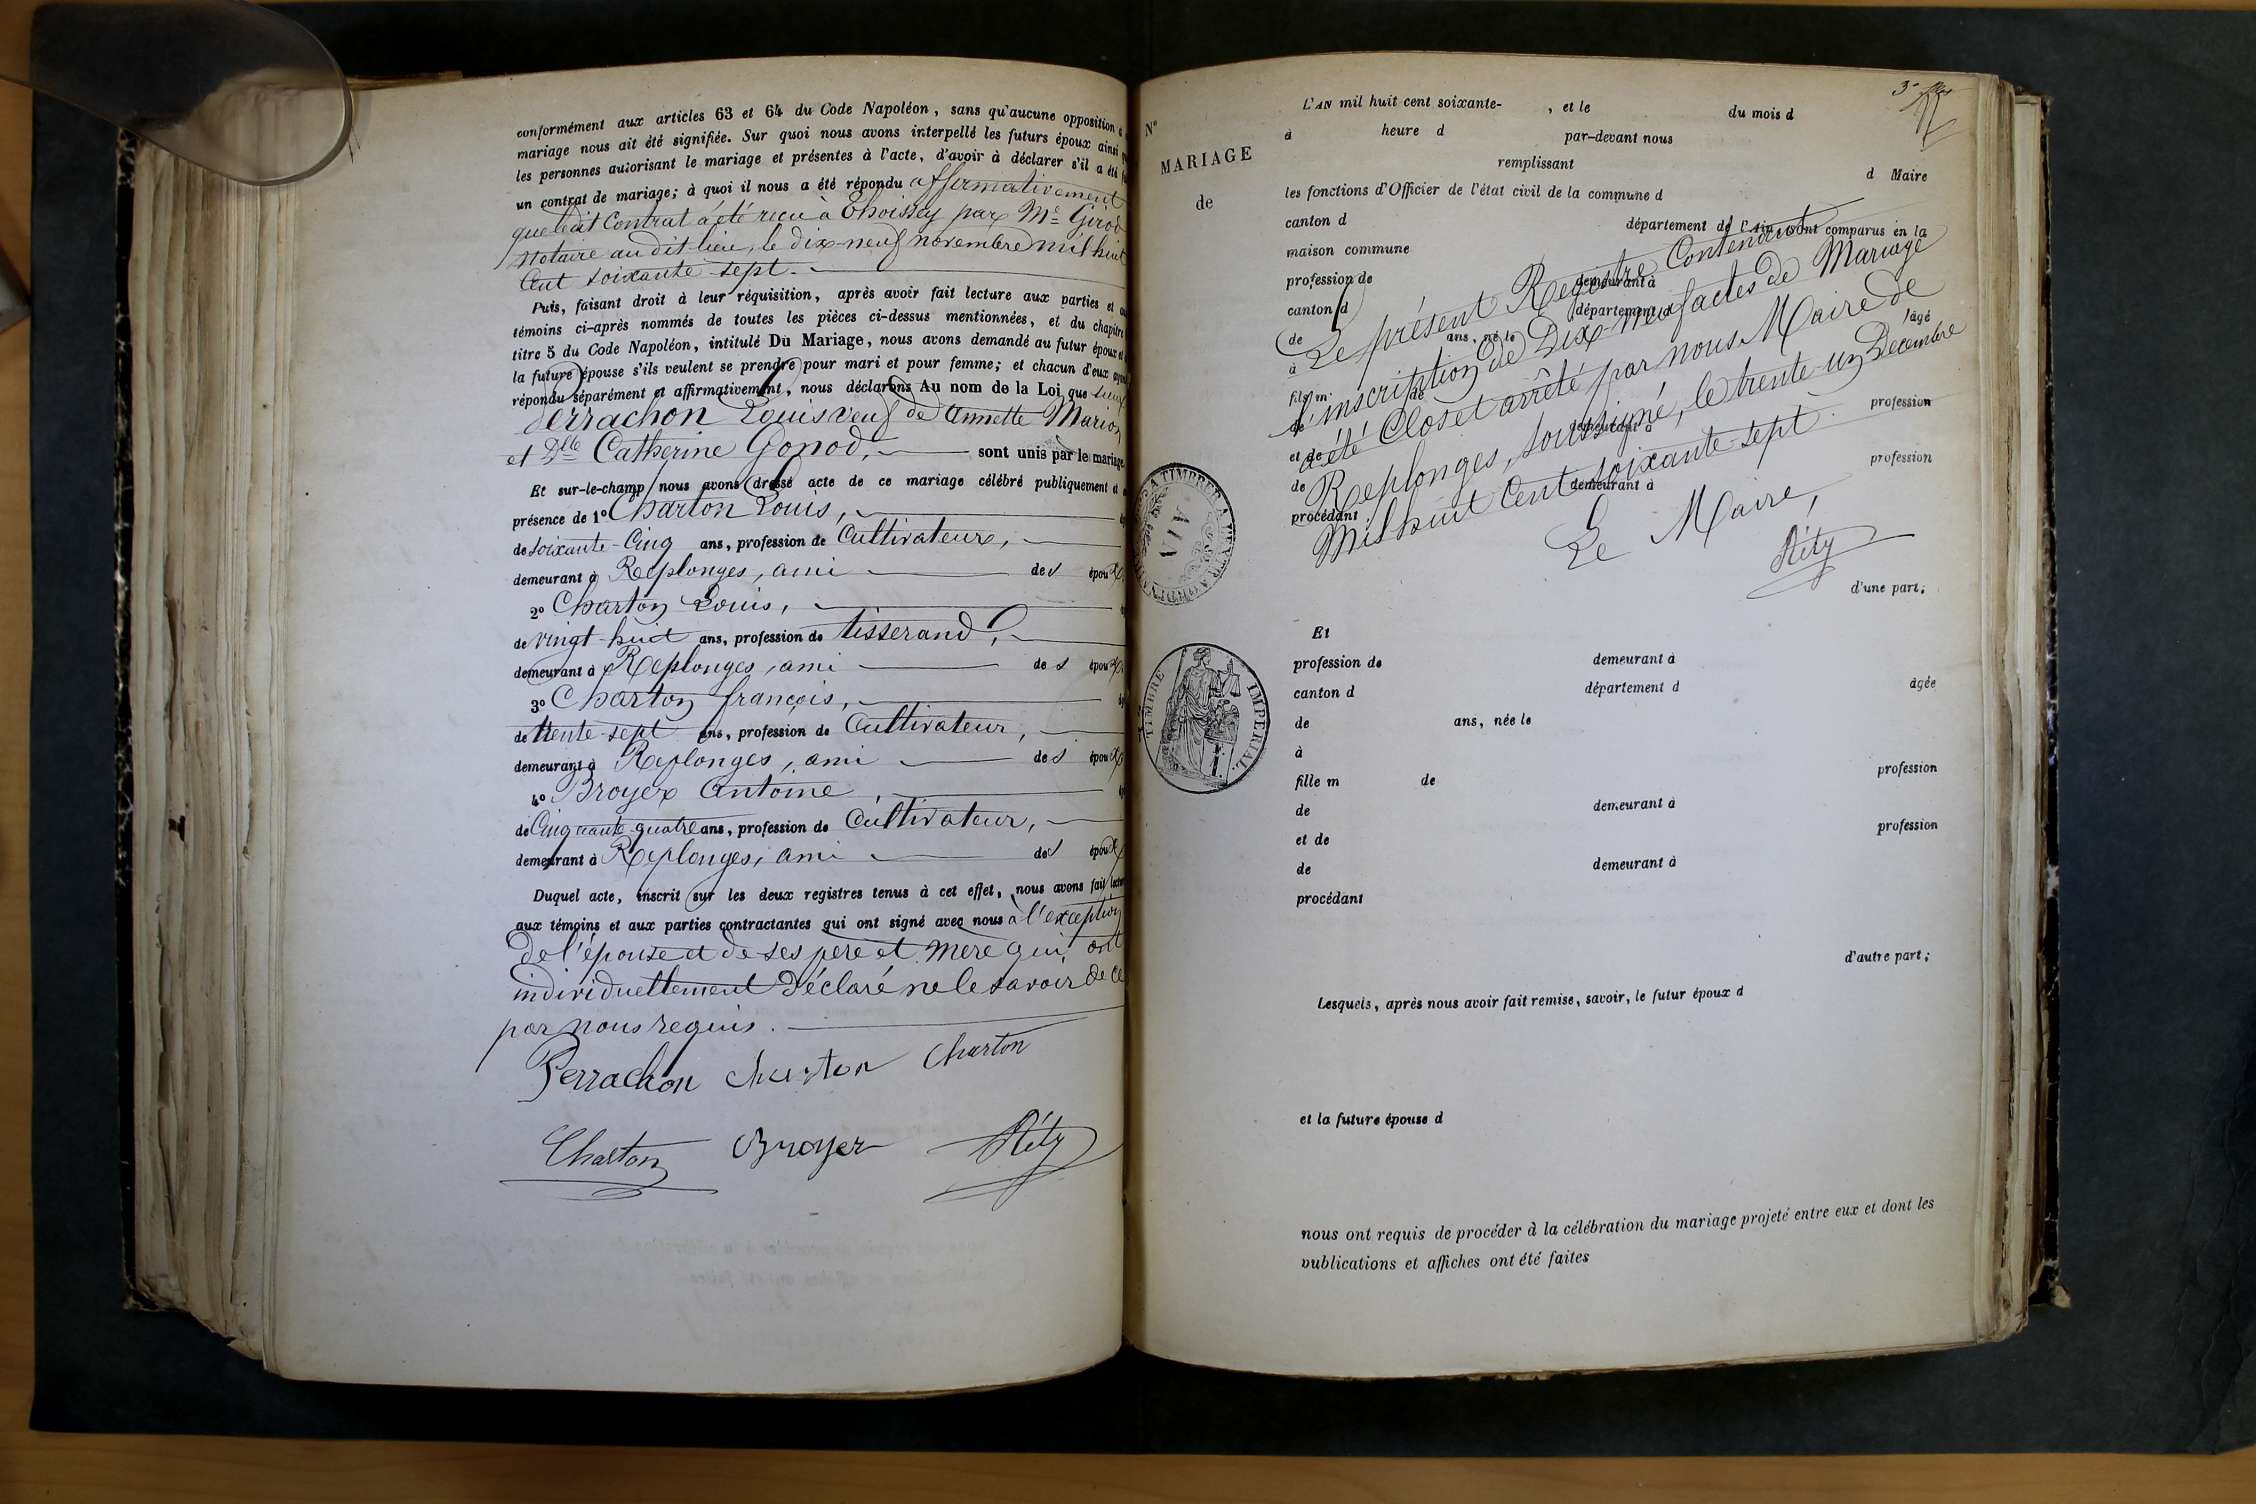 conformément aux articles 63 et 64 du Code Napoléon, sans qu'aucune opposition a
mariage nous ait été signifiée. Sur quoi nous avons interpellé les futurs époux ainsi
les personnes autorisant le mariage et présentes à l'acte, d'avoir à déclarer s'il a été
un contrat de mariage; à quoi il nous a été répondu affirmativement
que ledit Contrat a été reçu à Thoissey par Me Girod
Notaire au dit lieu, le dix-neuf novembre mil huit
Cent soixante-sept.
Puis, faisant droit à leur réquisition, après avoir fait lecture aux parties et
témoins ci-après nommés de toutes les pièces ci-dessus mentionnées, et du chapitre
titre 5 du Code Napoléon, intitulé Du Mariage, nous avons demandé au futur époux et
la future épouse s'ils veulent se prendre pour mari et pour femme; et chacun d'eux
répondu séparément et affirmativement, nous déclarons Au nom de la Loi que
Perrachon Louis veuf de Annette Marion
et Dlle Catherine Gonod, sont unis par le mariage.
Et sur-le-champ nous avons dressé acte de ce mariage célébré publiquement et
présence de 1° Charton Louis,
de soixante-Cinq ans, profession de Cultivateur,
demeurant à Replonges, ami des époux
2° Charton Louis,
de vingt-huit ans, profession de tisserand,
demeurant à Replonges, ami des époux
3° Charton françois,
de trente-sept ans, profession de Cultivateur,
demeurant à Replonges, ami des époux
4° Broyer Antoine,
de Cinquante-quatre ans, profession de Cultivateur,
demeurant à Replonges, ami des époux
Duquel acte, inscrit sur les deux registres tenus à cet effet, nous avons fait lecture
aux témoins et aux parties contractantes qui ont signé avec nous à l'exception
de l'épouse et de ses père et mère qui ont
individuellement déclaré ne le savoir de ce
par nous requis.
Perrachon Charton Charton
Charton Broyer Réty
N°
MARIAGE
de
L'AN mil huit cent soixante- , et le du mois d
à heure d par-devant nous
remplissant d Maire
les fonctions d'Officier de l'état civil de la commune d
canton d département de l'Ain sont comparus en la
maison commune
profession de demeurant à
canton d département d âgé
de ans, né le
à
fils m de profession
de demeurant à
et de profession
de demeurant à
procédant
Le présent Registre Contenant
l'inscription de Dix-neuf actes de Mariage
a été Clos et arrêté par nous Maire de
Replonges, soussigné, le trente-un Décembre
Mil huit Cent soixante-sept.
Le Maire,
Réty
d'une part;
TIMBRE IMPERIAL.
AIN
Et
profession de demeurant à
canton d département d âgée
de ans, née le
à
fille m de profession
de demeurant à
et de profession
de demeurant à
procédant
d'autre part;
Lesquels, après nous avoir fait remise, savoir, le futur époux d
et la future épouse d
nous ont requis de procéder à la célébration du mariage projeté entre eux et dont les
publications et affiches ont été faites